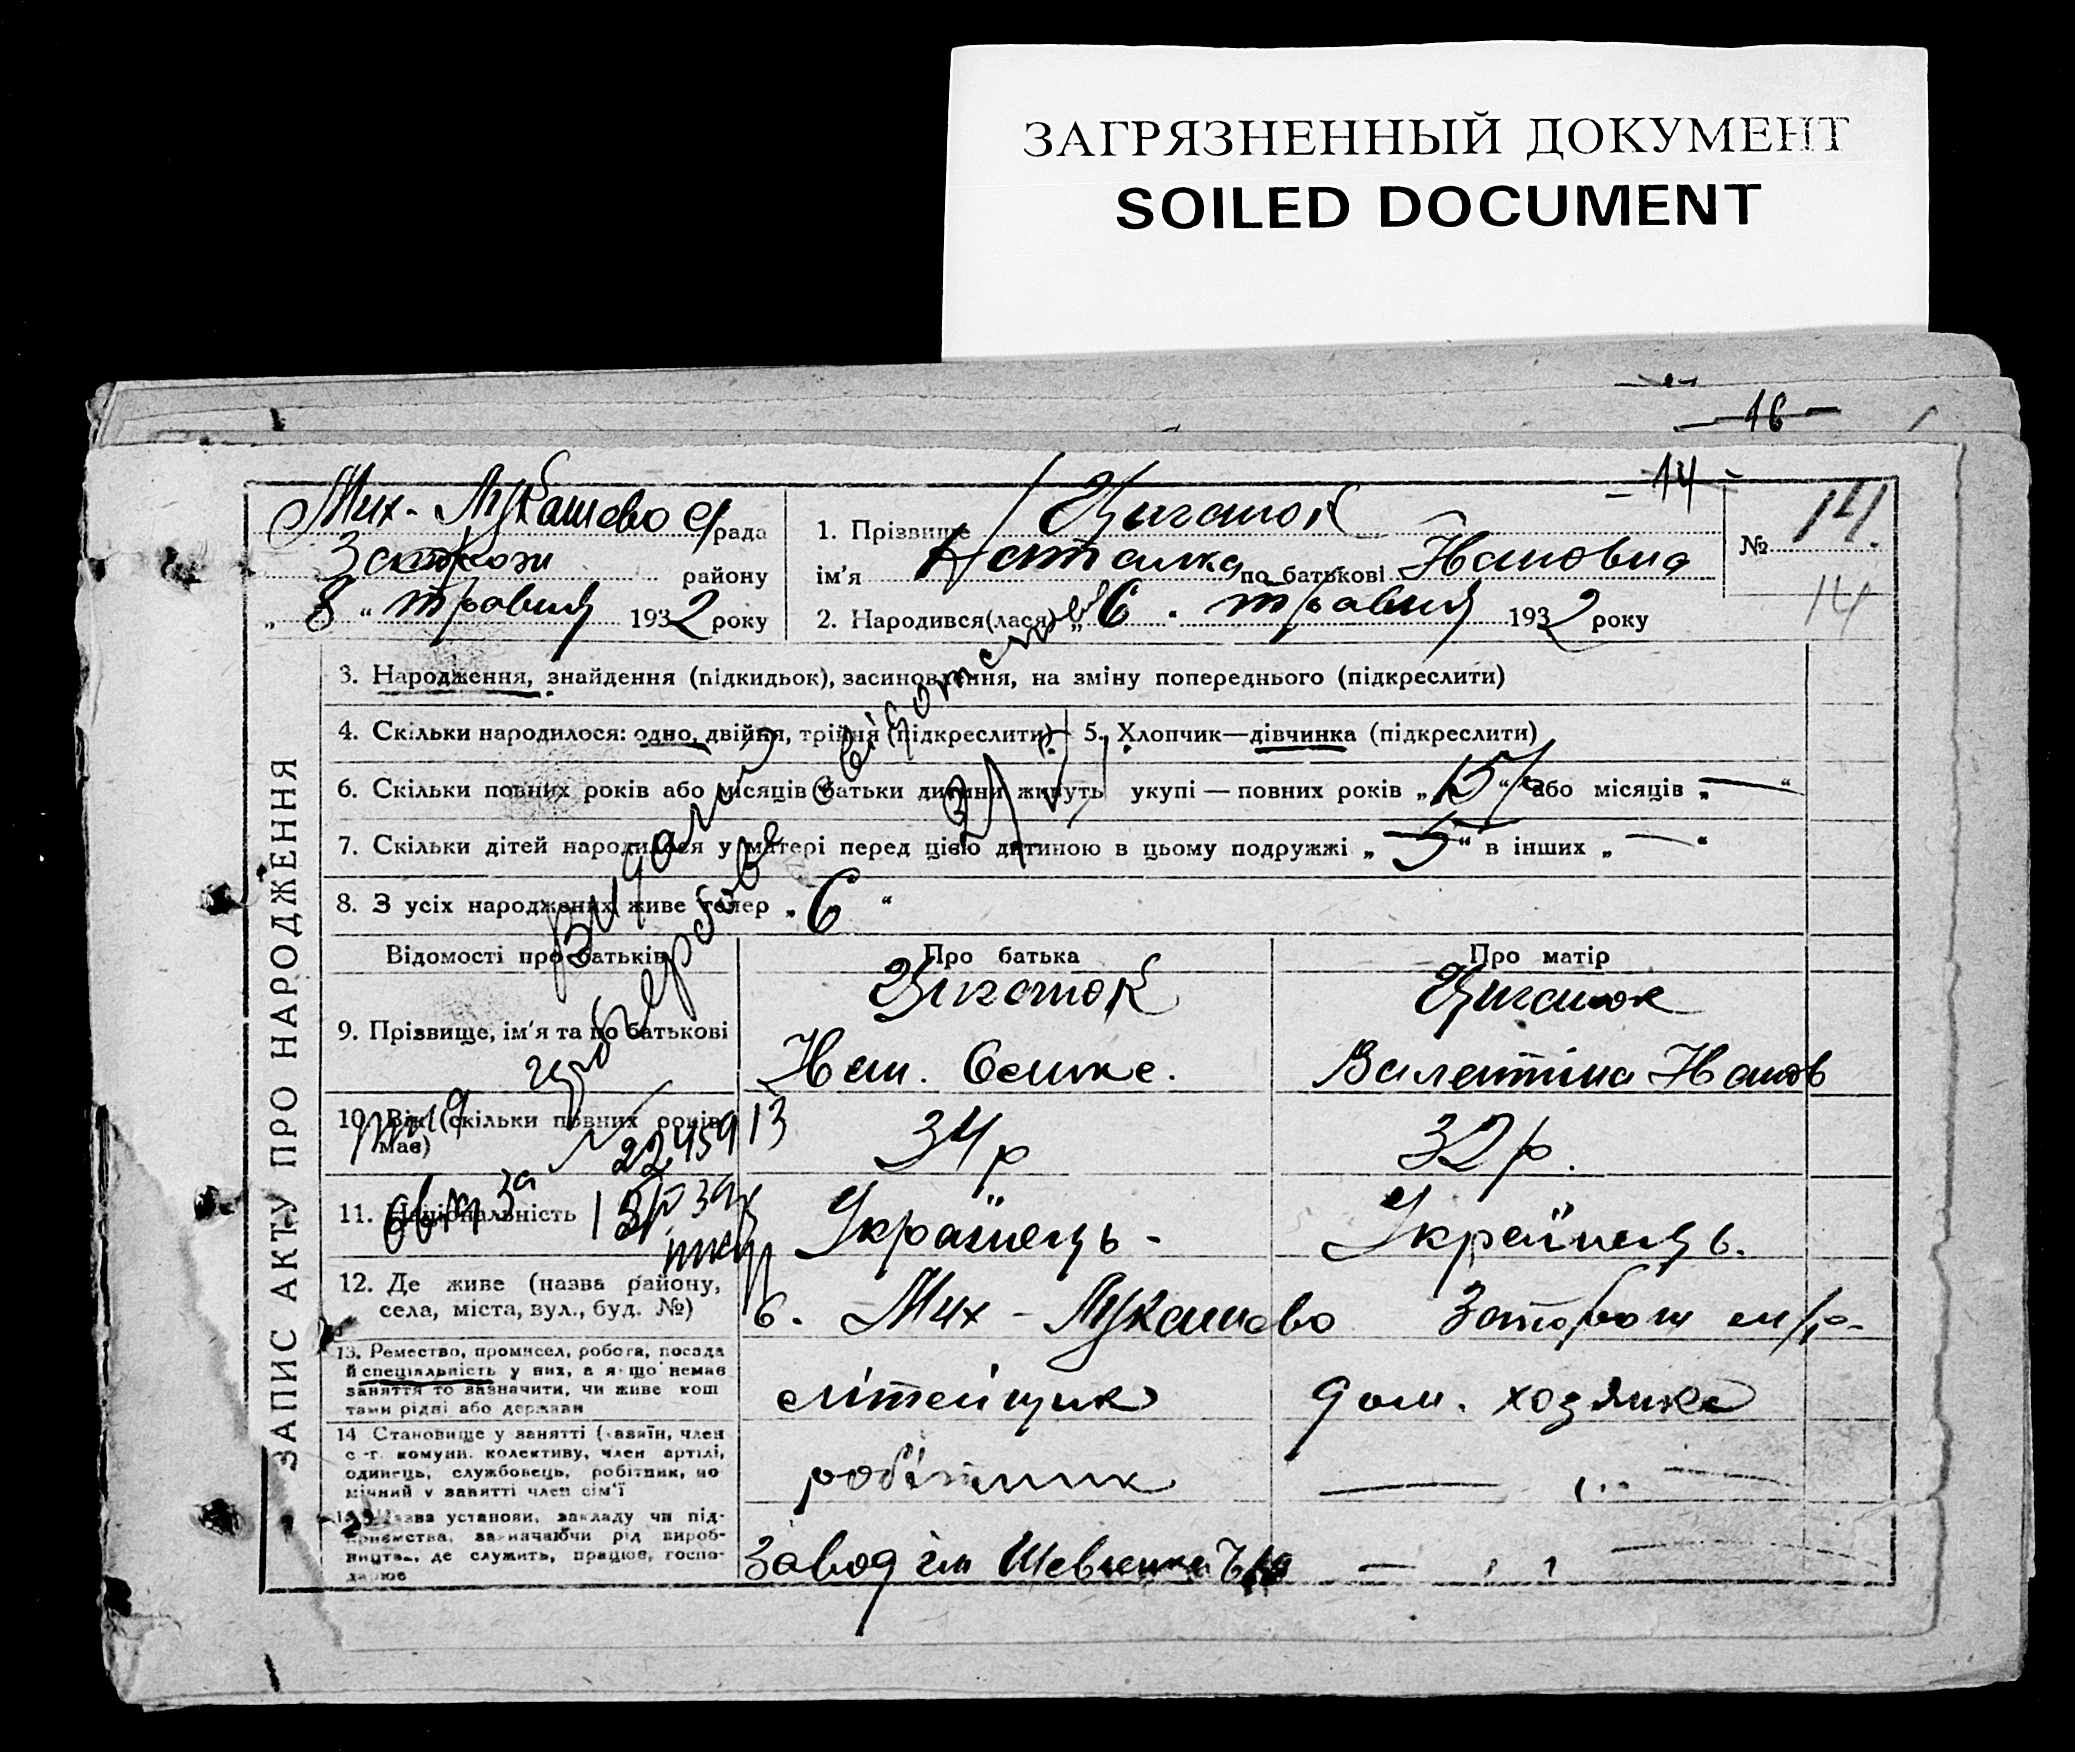 ЗАГРЯЗНЕННЫЙ ДОКУМЕНТ
SOILED DOCUMENT
— 16 —
— 14 —
Мих- Лукашево с/рада
району
„ 8 “ травня 1932 року
1. Прізвище Циганок
ім'я Наталка по батькові Івановна
2. Народився(лася) „ 6 “ травня 1932 року
№ 14.
14
ЗАПИС АКТУ ПРО НАРОДЖЕННЯ
3. Народження, знайдення (підкидьок), засиновлення, на зміну попереднього (підкреслити)
4. Скільки народилося: одно, двійня, трійня (підкреслити)
5. Хлопчик—дівчинка (підкреслити)
6. Скільки повних років або місяців батьки дитини живуть укупі — повних років „ 15 “ або місяців „ — “
7. Скільки дітей народилася у матері перед цією дитиною в цьому подружжі „ 5 “ в інших „ — “
8. З усіх народжених живе тепер „ 6 “
Видано
свідотство
Відомості про батьків
Про батька
Про матір
9. Прізвище, ім'я та по батькові
Циганок
Іван
Циганок
Валентіна Іванов
10. Вік (скільки повних років має)
34 р
32 р.
11. Національність
Українець -
Українець.
12. Де живе (назва району,
села, міста, вул., буд. №)
с. Мих - Лукашево
13. Ремество, промисел, робота, посада
й спеціяльність у них, а якщо немає
заняття то зазначити, чи живе кош
тами рідні або держави
літейщик
дом. хозяйка
14 Становище у занятті (хазяїн, член
с.-г. комуни. колективу, член артілі,
одинець, службовець, робітник, по
мічний у занятті член сім'ї
робітник
—
15. Назва установи, закладу чи під-
приємства, зазначаючи рід вироб-
ництва, де служить, працює, госпо-
дарює
Завод ім Шевченка
—